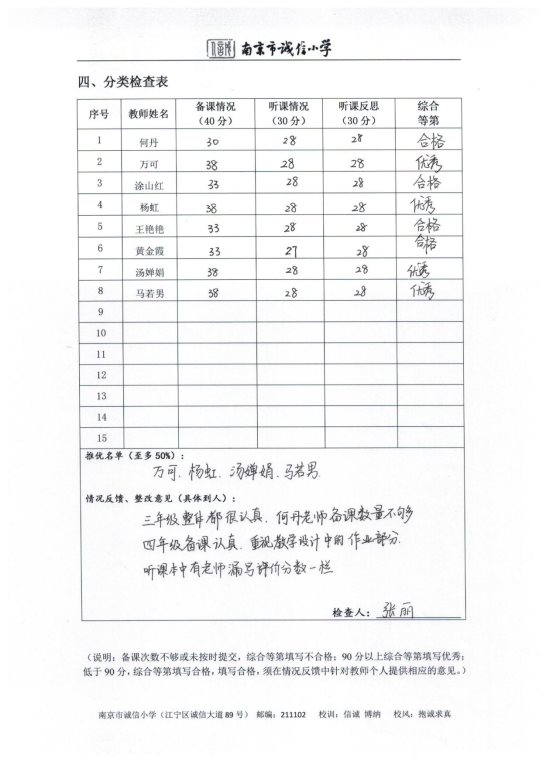 南京市诚信小学
四、分类检查表
序号 教师姓名 备课情况（40 分） 听课情况（30 分） 听课反思（30 分） 综合等第
1 何丹 30 28 28 合格
2 万可 38 28 28 优秀
3 涂山红 33 28 28 合格
4 杨虹 38 28 28 优秀
5 王艳艳 33 28 28 合格
6 黄金霞 33 27 28 合格
7 汤婵娟 38 28 28 优秀
8 马若男 38 28 28 优秀
9
10
11
12
13
14
15
推优名单（至多 50%）：
万可、杨虹、汤婵娟、马若男
情况反馈、整改意见（具体到人）：
三年级整体都很认真、何丹老师备课数量不够
四年级备课认真、重视教学设计中的作业部分
听课本中有老师漏写评价分数一栏
检查人：张丽
（说明：备课次数不够或未按时提交，综合等第填写不合格；90 分以上综合等第填写优秀；
低于 90 分，综合等第填写合格，填写合格，须在情况反馈中针对教师个人提供相应的意见。）
南京市诚信小学（江宁区诚信大道 89 号） 邮编：211102 校训：信诚 博纳 校风：抱诚求真